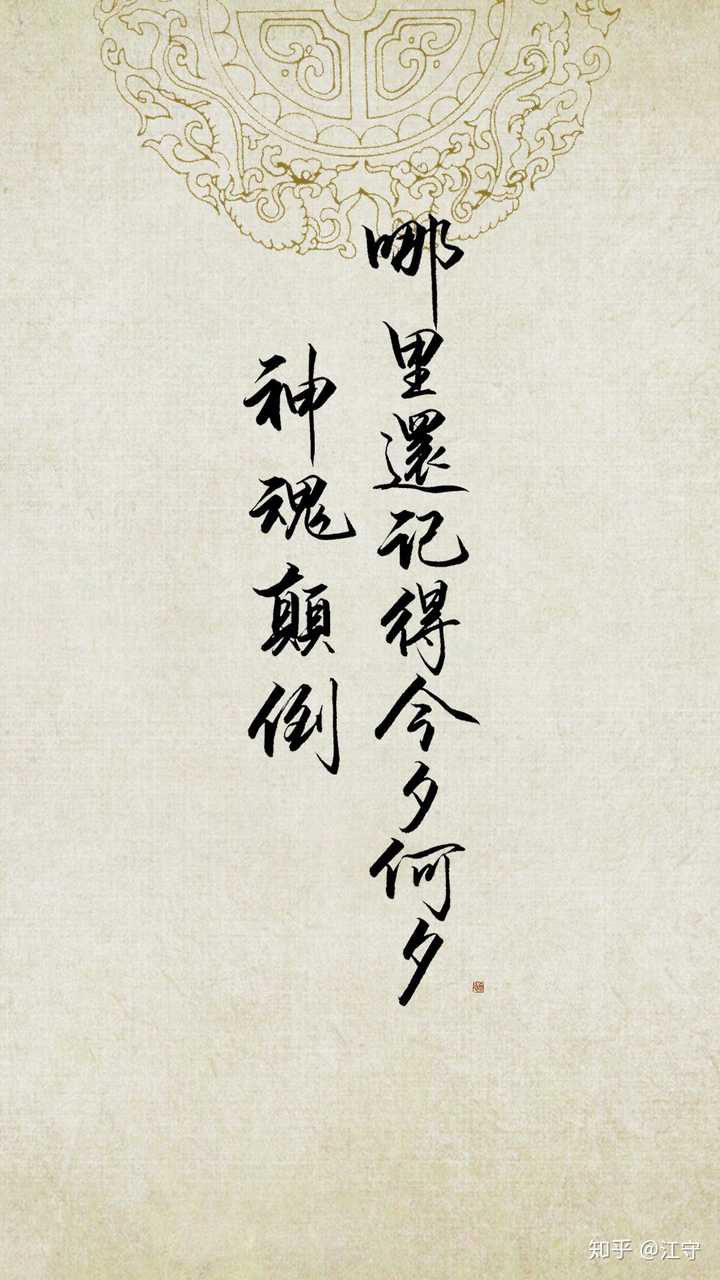 哪里還记得今夕何夕
神魂顛倒
知乎 @江守